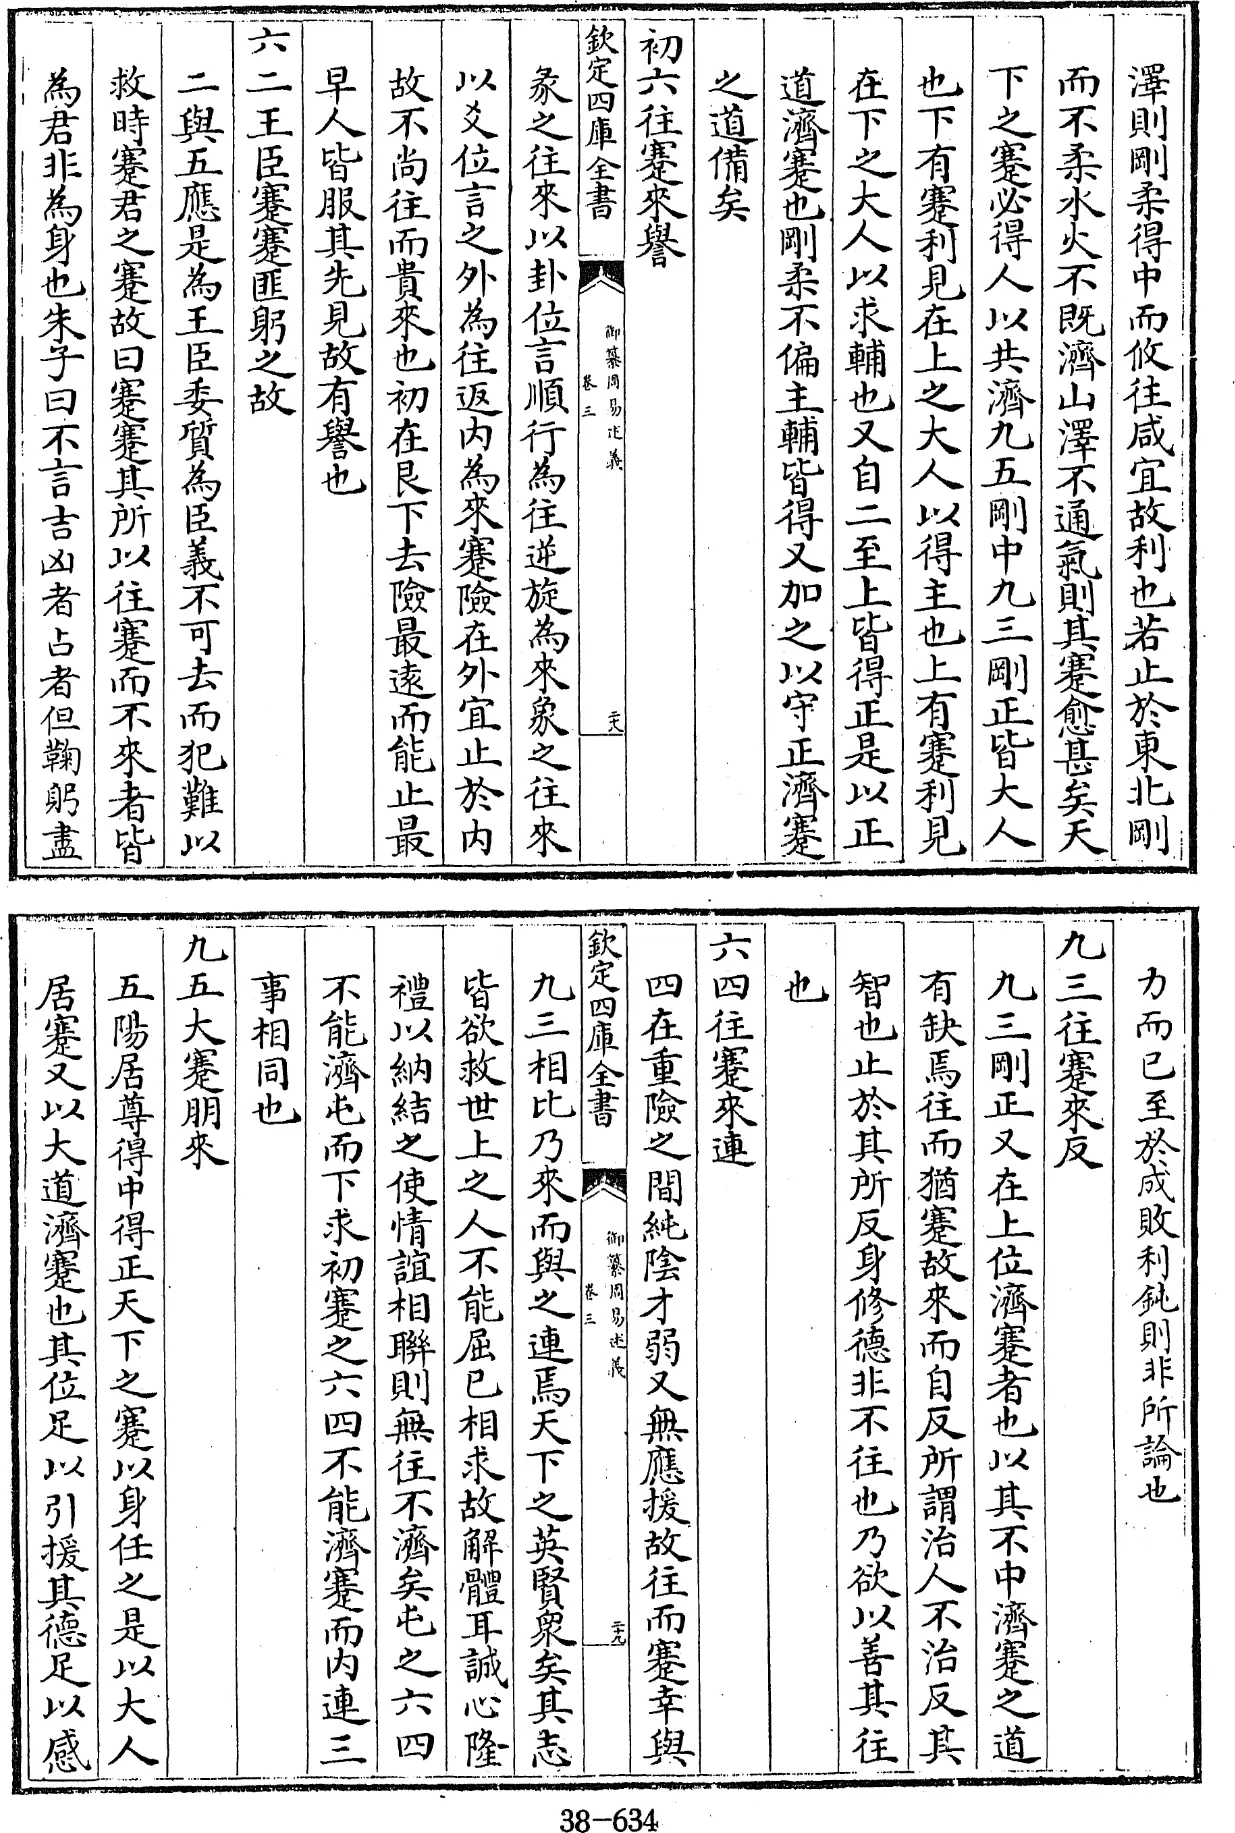 澤則剛柔得中而攸往咸宜故利也若止於東北剛
而不柔水火不既濟山澤不通氣則其蹇愈甚矣天
下之蹇必得人以共濟九五剛中九三剛正皆大人
也下有蹇利見在上之大人以得主也上有蹇利見
在下之大人以求輔也又自二至上皆得正是以正
道濟蹇也剛柔不偏主輔皆得又加之以守正濟蹇
之道備矣
初六往蹇來譽
欽定四庫全書
御纂周易述義
卷三
二十八
彖之往來以卦位言順行為往逆旋為來象之往來
以爻位言之外為往返内為來蹇險在外宜止於内
故不尚往而貴來也初在艮下去險最遠而能止最
早人皆服其先見故有譽也
六二王臣蹇蹇匪躬之故
二與五應是為王臣委質為臣義不可去而犯難以
救時蹇君之蹇故曰蹇蹇其所以往蹇而不來者皆
為君非為身也朱子曰不言吉凶者占者但鞠躬盡
力而已至於成敗利鈍則非所論也
九三往蹇來反
九三剛正又在上位濟蹇者也以其不中濟蹇之道
有缺焉往而猶蹇故來而自反所謂治人不治反其
智也止於其所反身修德非不往也乃欲以善其往
也
六四往蹇來連
四在重險之間純陰才弱又無應援故往而蹇幸與
欽定四庫全書
御纂周易述義
卷三
二十九
九三相比乃來而與之連焉天下之英賢衆矣其志
皆欲救世上之人不能屈已相求故解體耳誠心隆
禮以納結之使情誼相聯則無往不濟矣屯之六四
不能濟屯而下求初蹇之六四不能濟蹇而内連三
事相同也
九五大蹇朋來
五陽居尊得中得正天下之蹇以身任之是以大人
居蹇又以大道濟蹇也其位足以引援其德足以感
38-634